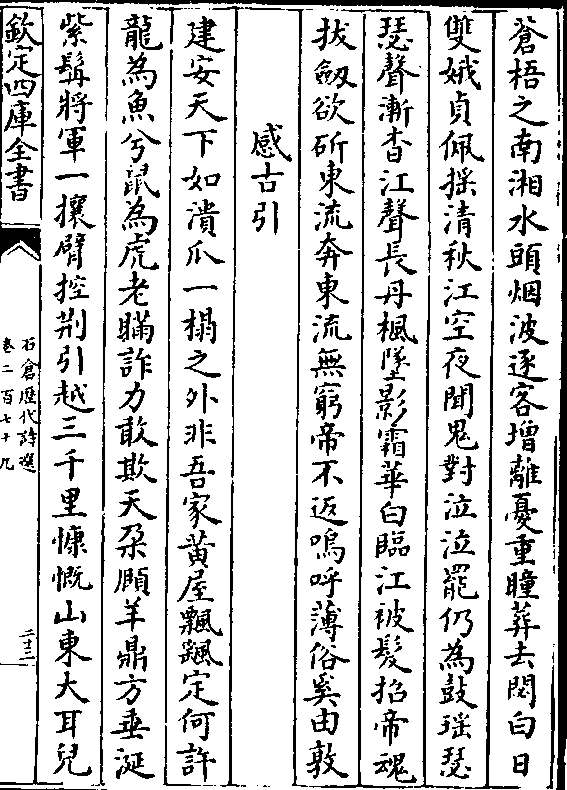 蒼梧之南湘水頭烟波逐客增離憂重瞳葬去閟白日
雙娥貞佩揺清秋江空夜聞鬼對泣泣罷仍為鼓瑶瑟
瑟聲漸杳江聲長丹楓墜影霜華白臨江被髮招帝魂
拔劒欲斫東流奔東流無窮帝不返嗚呼薄俗奚由敦
感古引
建安天下如潰瓜一榻之外非吾家黄屋飄颻定何許
龍為魚兮䑕為虎老瞞詐力敢欺天朶頥羊鼎方垂涎
紫髯將軍一攘臂控荆引越三千里慷慨山東大耳兒
欽定四庫全書
石倉歴代詩選
卷二百七十九
二十二